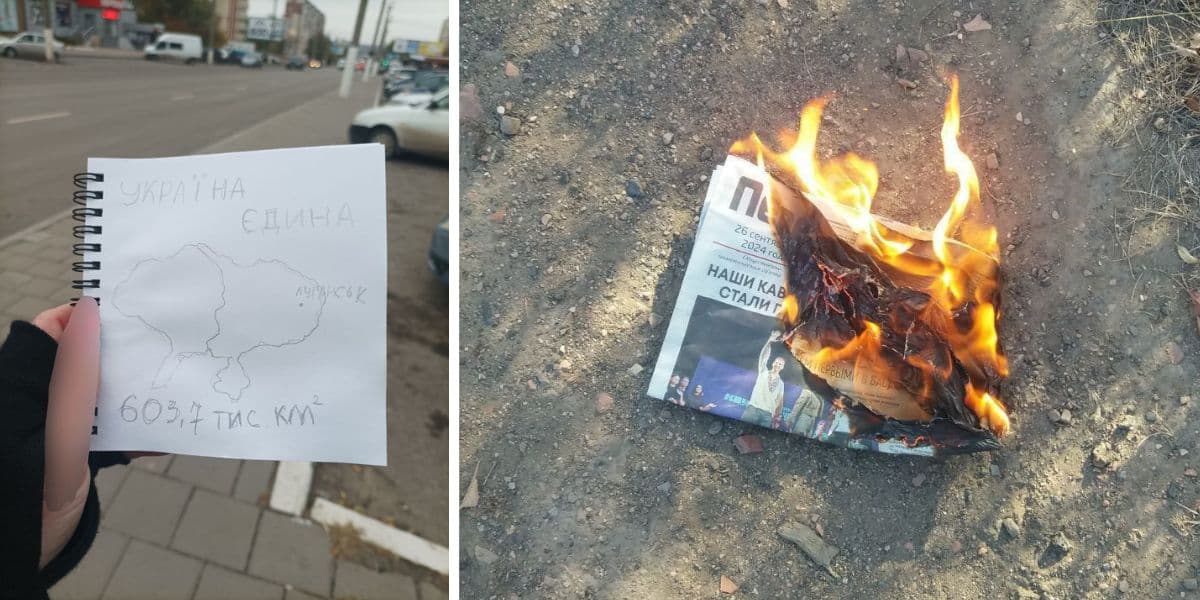 УКРАЇНА
ЄДИНА
ЛУГАНСЬК
603,7 ТИС КМ²
26 сентя
2024 год
НАШИ КАВ
СТАЛИ П
ПЕРВЫМИ В